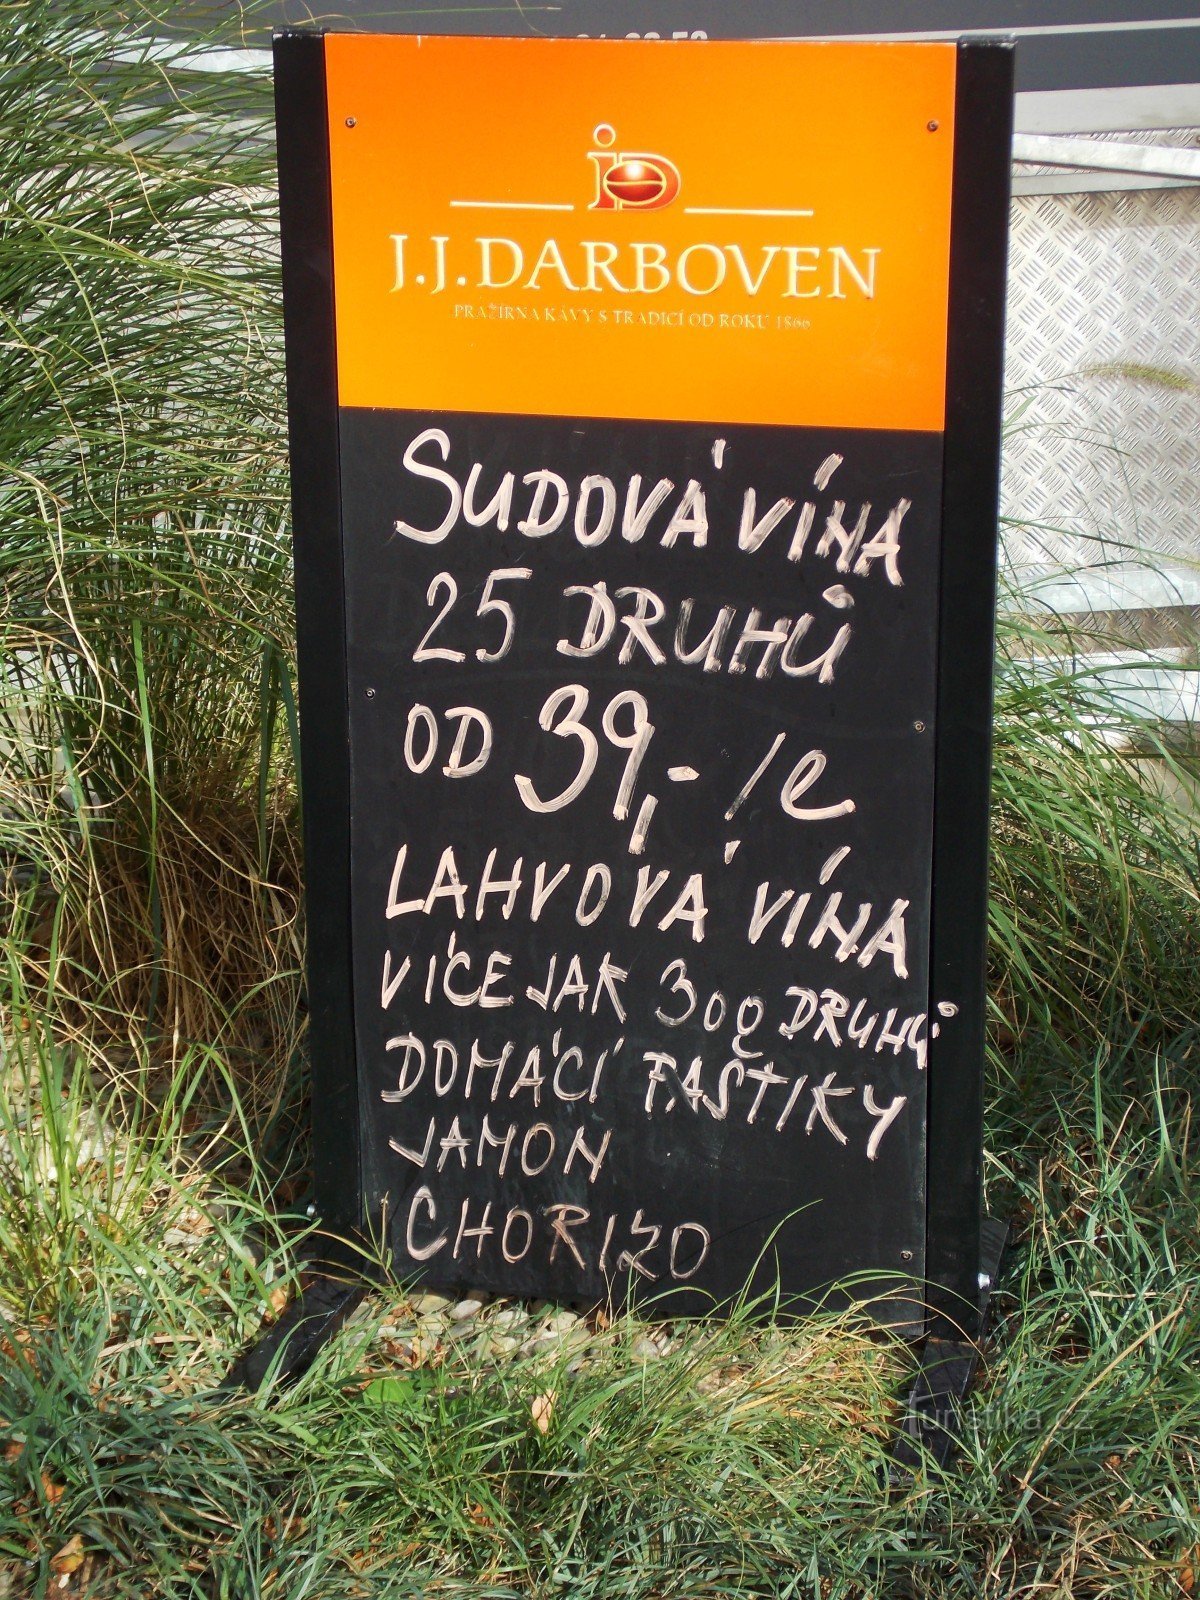 J.J.DARBOVEN
PRAŽÍRNA KÁVY S TRADICÍ OD ROKU 1866
SUDOVÁ VÍNA
25 DRUHŮ
OD 39,- /l
LAHVOVÁ VÍNA
VÍCE JAK 300 DRUHŮ
DOMÁCÍ PAŠTIKY
JAMON
CHORIZO
Turistika.cz